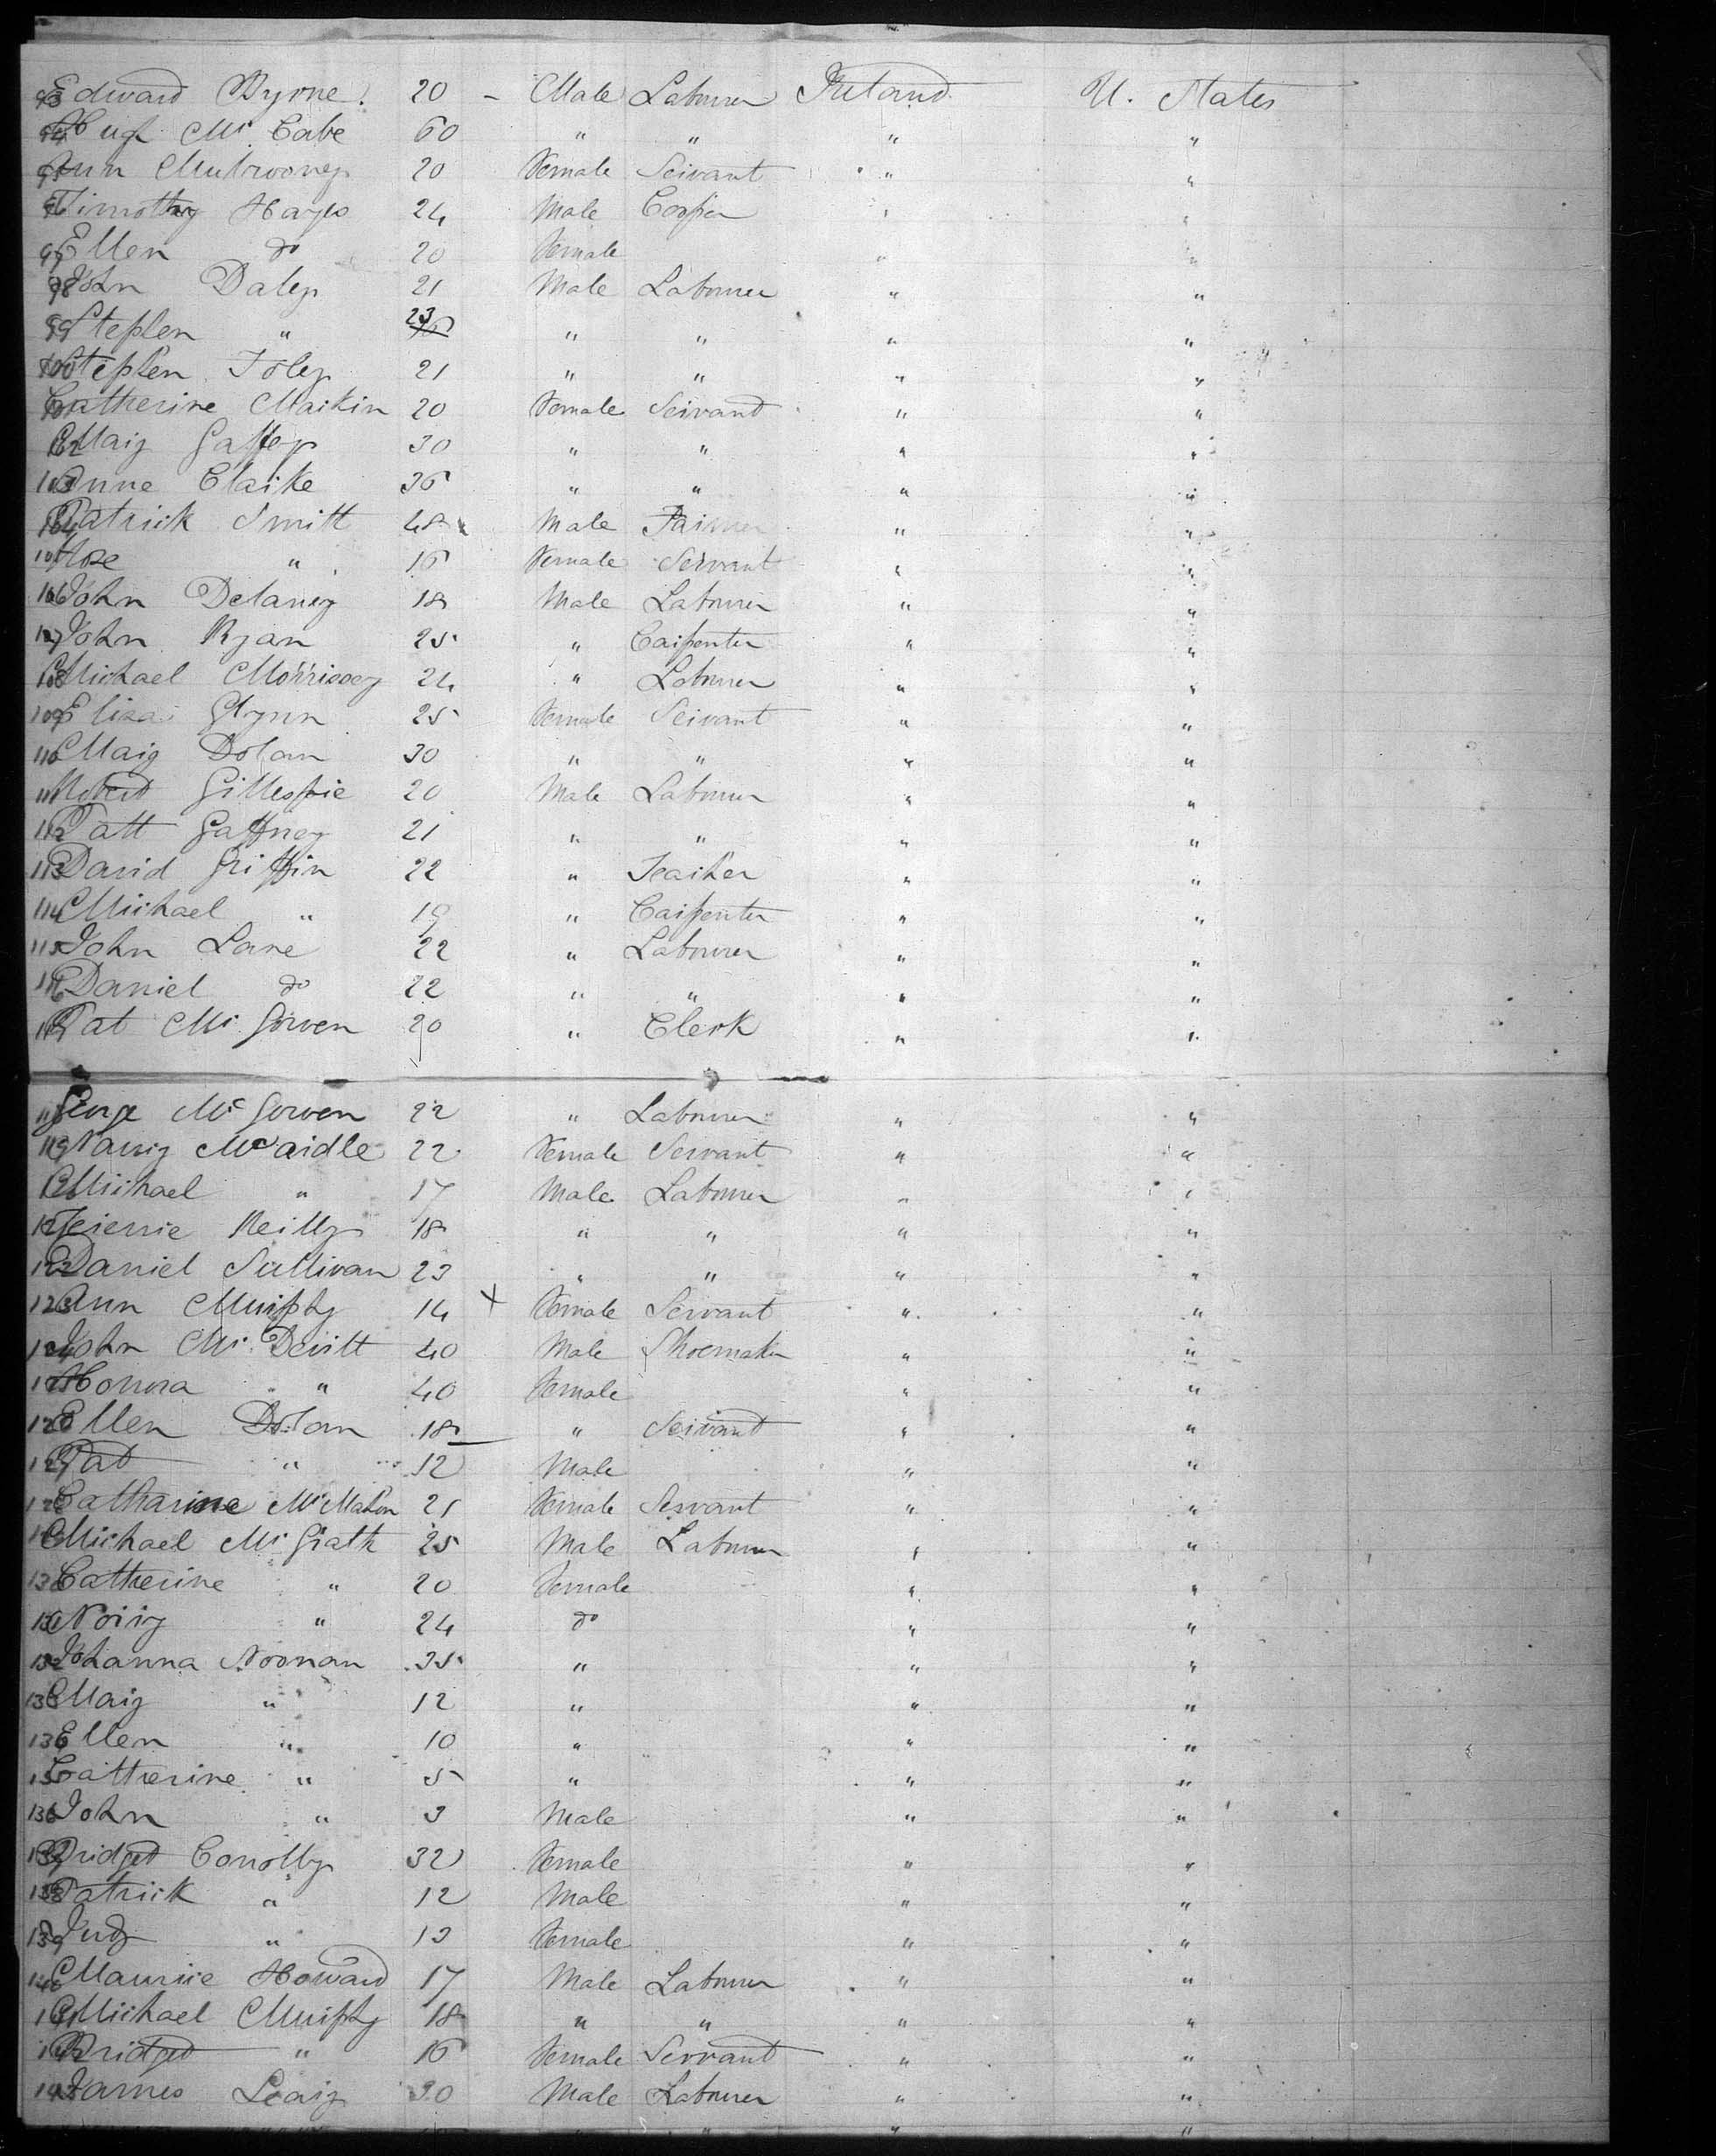 93 Edward Byrne. 20 - Male Labourer Ireland U. States
94 Hugh Mc Cabe 60 " " " "
95 Ann Mulrooney 20 Female Servant " "
96 Timothy Hayes 24 Male Cooper " "
97 Ellen do 20 Female " "
98 John Daley 21 Male Labourer " "
99 Stephen " 23 " " " "
100 Stephen Foley 21 " " " "
101 Catherine Markin 20 Female Servant " "
102 Mary Gaffey 30 " " " "
103 Anne Clarke 36 " " " "
104 Patrick Smith 48 Male Farmer " "
105 Rose " 16 Female Servant " "
106 John Delaney 18 Male Labourer " "
107 John Ryan 25 " Carpenter " "
108 Michael Morrissey 24 " Labourer " "
109 Eliza Glynn 25 Female Servant " "
110 Mary Dolan 30 " " " "
111 Robert Gillespie 20 Male Labourer " "
112 Patt Gaffney 21 " " " "
113 David Griffin 22 " Teacher " "
114 Michael " 19 " Carpenter " "
115 John Lane 22 " Labourer " "
116 Daniel do 22 " " " "
117 Pat Mc Gowen 20 " Clerk " "
118 George Mc Gowen 22 " Labourer " "
119 Nancy Mc ardle 22 Female Servant " "
120 Michael " 17 Male Labourer " "
121 Reilly 18 " " " "
122 Daniel Sullivan 23 " " " "
123 Ann Murphy 14 + Female Servant " "
124 John Mc Devitt 40 Male Shoemaker " "
125 Honora " 40 Female " "
126 Ellen Dolan 18 " Servant " "
127 Pat " 12 Male " "
128 Catharine McMahon 21 Female Servant " "
129 Michael Mc Grath 25 Male Labourer " "
130 Catherine " 20 Female " "
131 Norry " 24 do " "
132 Johanna Noonan 35 " " "
133 Mary " 12 " " "
134 Ellen " 10 " " "
135 Catherine " 5 " " "
136 John " 3 Male " "
137 Bridget Conolly 32 Female " "
138 Patrick " 12 Male " "
139 Judy " 13 Female " "
140 Maurice Howard 17 Male Labourer " "
141 Michael Murphy 18 " " " "
142 Bridget " 16 Female Servant " "
143 James Leary 30 Male Labourer " "